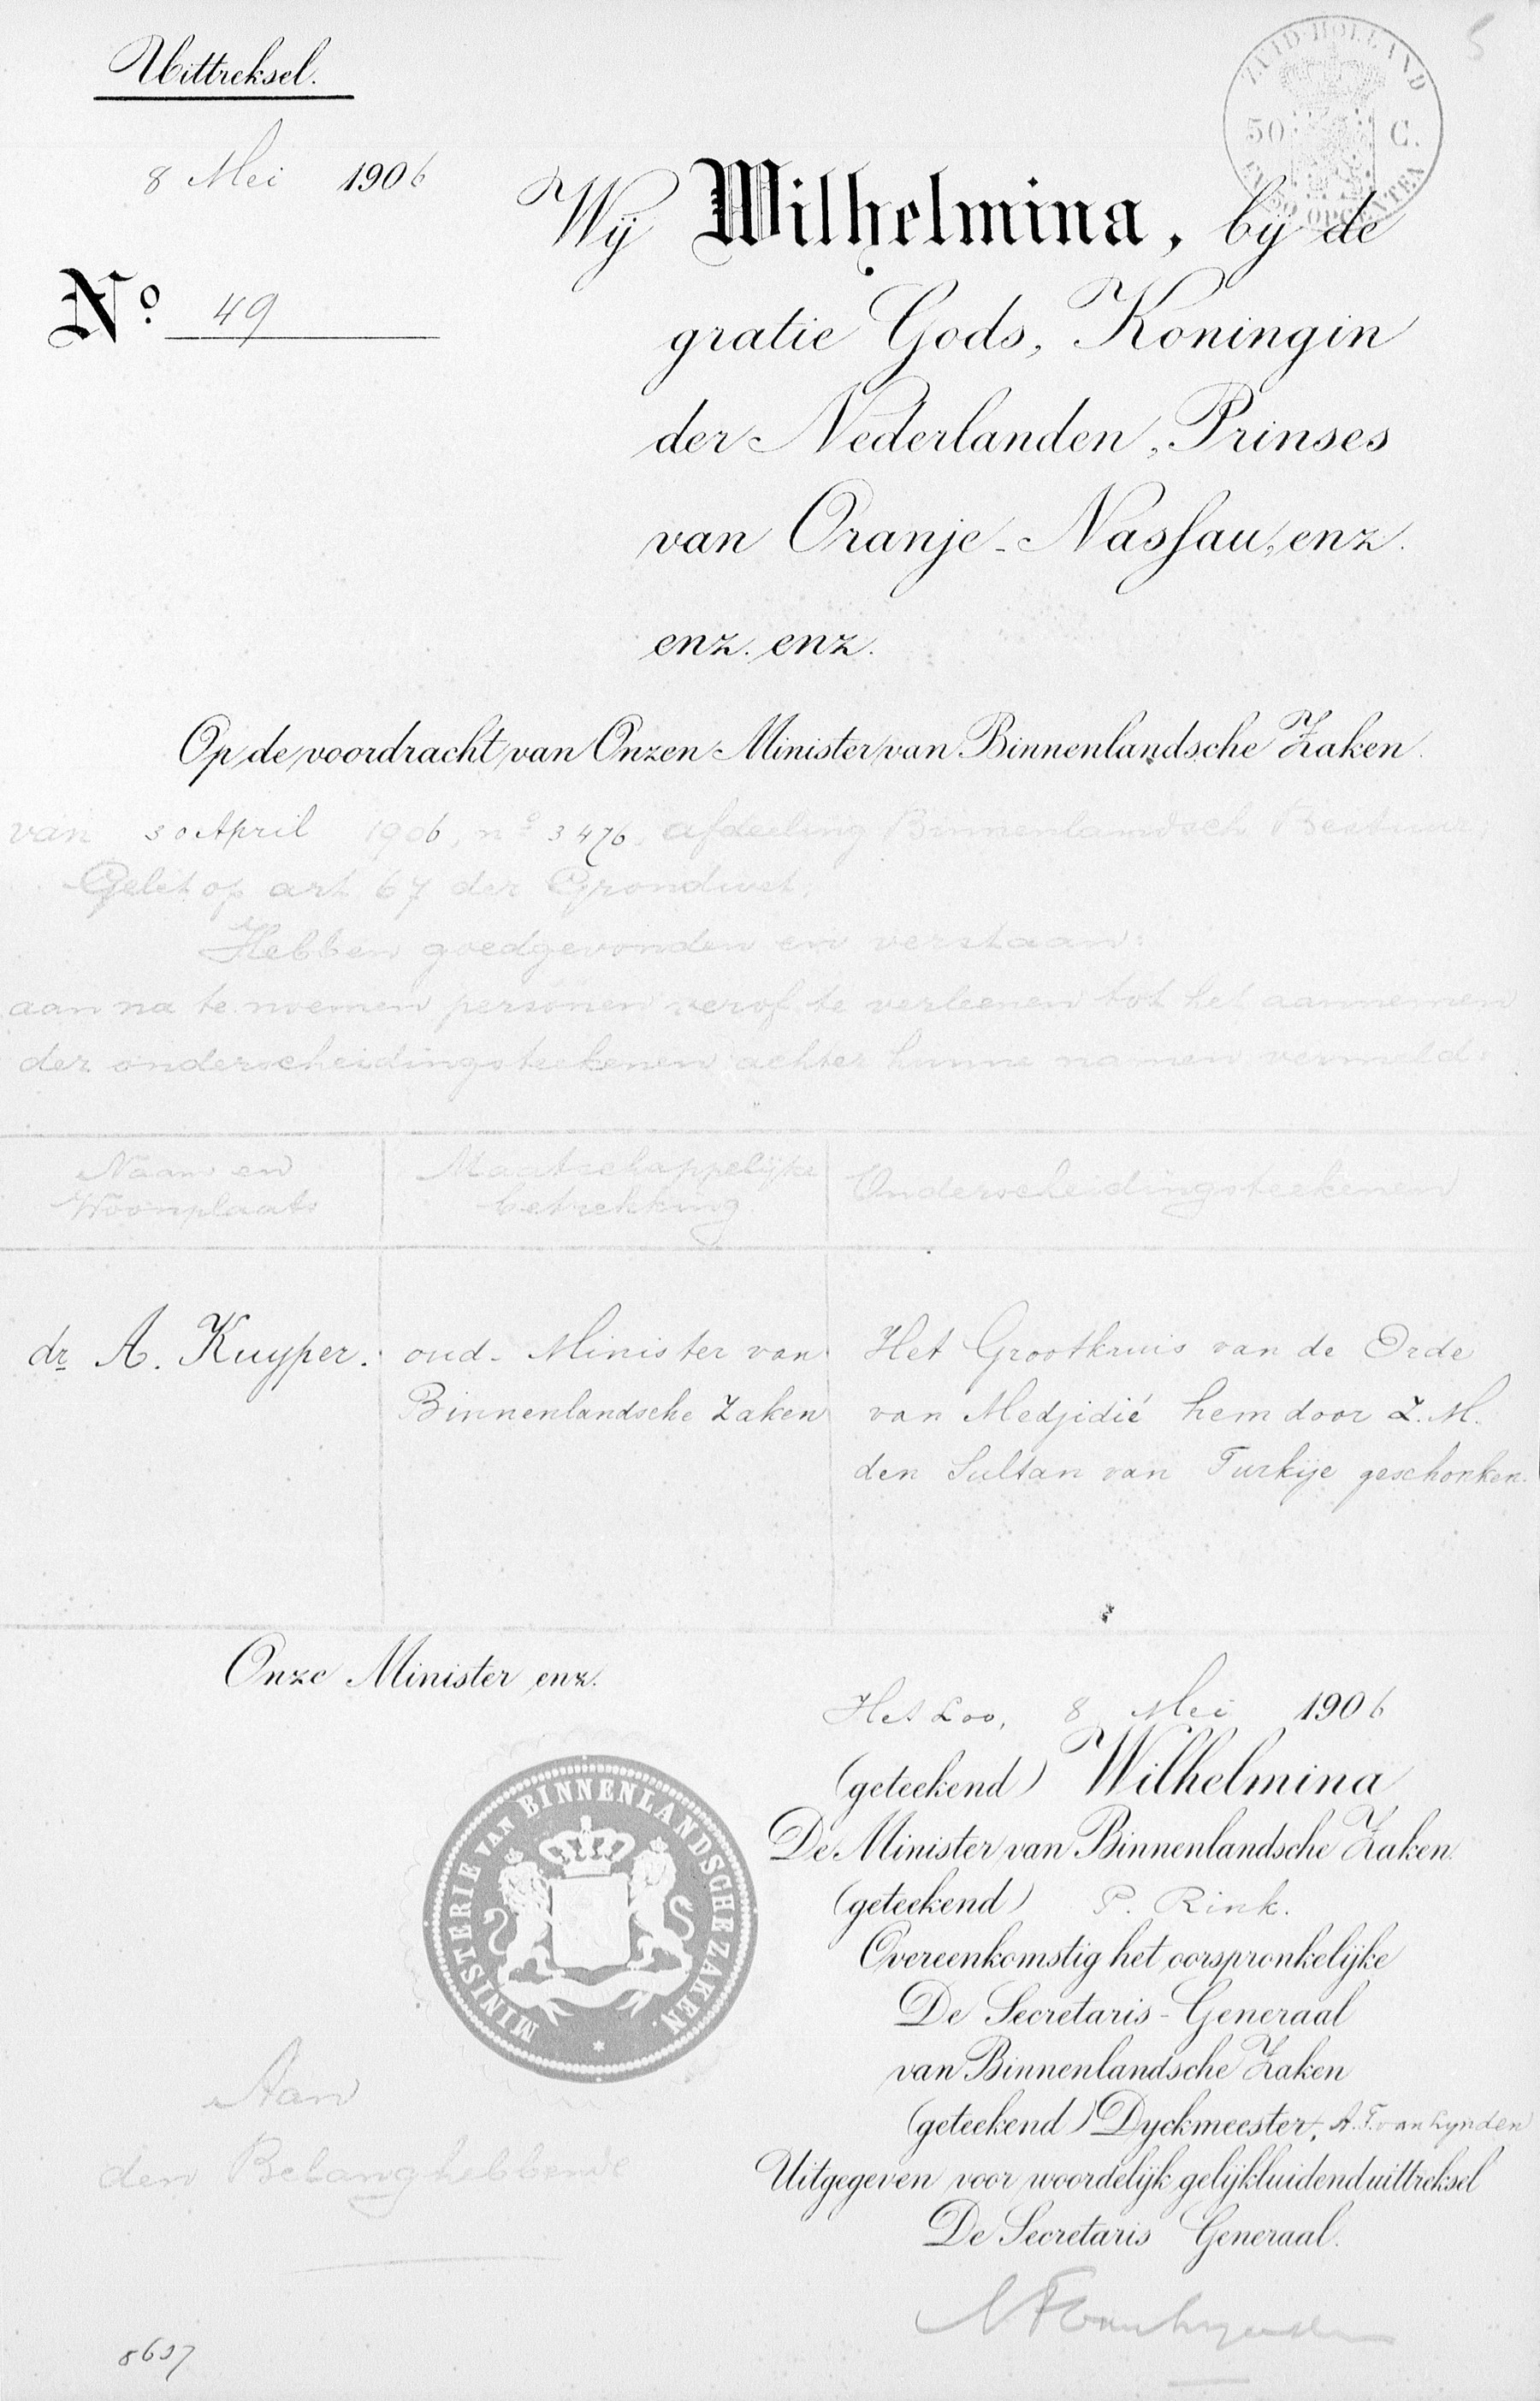 Uittreksel.
5
ZUID-HOLLAND
50 C.
EN 50 OPCENTEN
8 Mei 1906
No. 49
Wij Wilhelmina, bij de
gratie Gods, Koningin
der Nederlanden, Prinses
van Oranje-Nassau, enz.
enz. enz.
Op de voordracht van Onzen Minister van Binnenlandsche Zaken.
van 30 April 1906, no 3476, afdeeling Binnenlandsch Bestuur;
Gelet op art 67 der Grondwet;
Hebben goedgevonden en verstaan:
aan na te noemen personen verlof te verleenen tot het aannemen
der onderscheidingsteekenen achter hunne namen vermeld:
Naam en
Woonplaats
Maatschappelijke
betrekking.
Onderscheidingsteekenen
dr A. Kuyper.
oud-Minister van
Binnenlandsche Zaken
Het Grootkruis van de Orde
van Medjidié hem door Z. M.
den Sultan van Turkije geschonken.
Onze Minister enz.
Het Loo, 8 Mei 1906
(geteekend) Wilhelmina
De Minister van Binnenlandsche Zaken.
(geteekend) P. Rink.
Overeenkomstig het oorspronkelijke
De Secretaris-Generaal
van Binnenlandsche Zaken
(geteekend) Dyckmeester, A. F. van Lynden
Uitgegeven voor woordelijk gelijkluidend uittreksel
De Secretaris Generaal.
MINISTERIE VAN BINNENLANDSCHE ZAKEN
Aan
den Belanghebbende